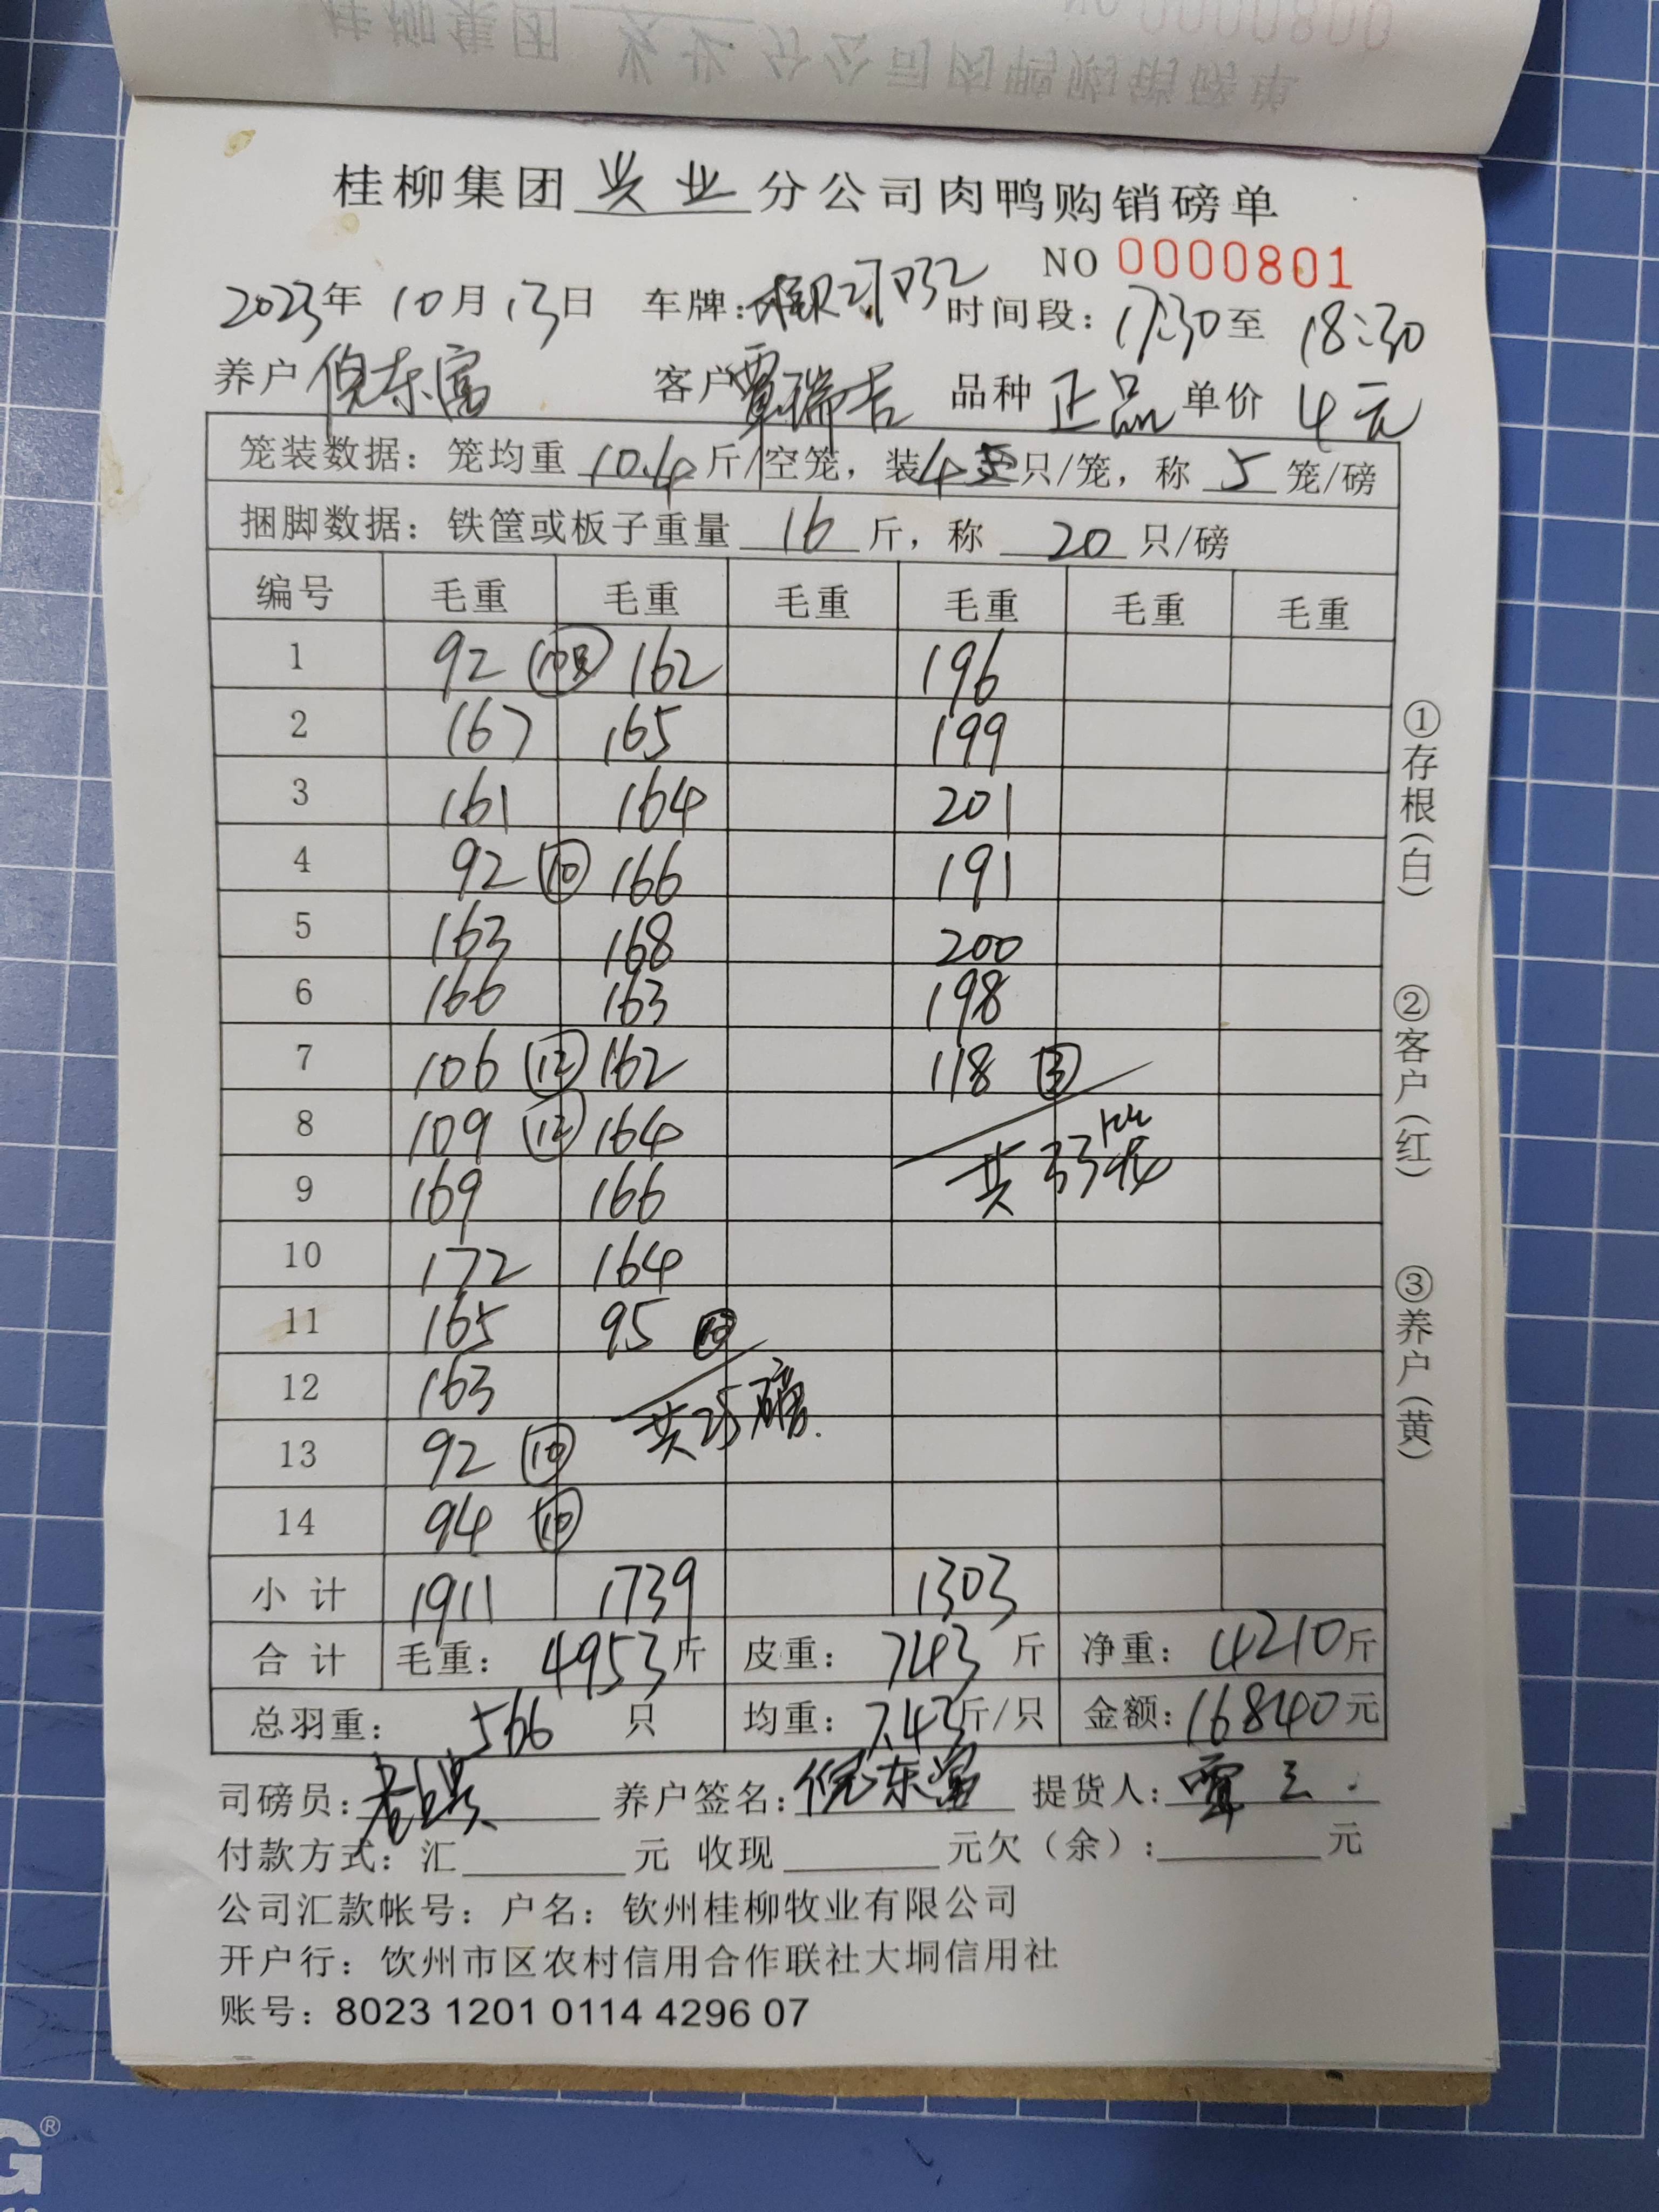 桂柳集团 兴业 分公司肉鸭购销磅单
NO 0000801
2023年 10月 13日 车牌: 时间段: 17:30至 18:30
养户 倪东富 客户 覃瑞吉 品种 正品 单价 4元
笼装数据: 笼均重 10.4 斤/空笼, 装4 只/笼, 称 5 笼/磅
捆脚数据: 铁筐或板子重量 16 斤, 称 20 只/磅
编号 毛重 毛重 毛重 毛重 毛重 毛重
1 92 10只 162 196
2 167 165 199
3 161 164 201
4 92 10 166 191
5 163 168 200
6 166 163 198
7 106 12 162 118 3
8 109 12 164
9 169 166 共33笼
10 172 164
11 165 95
12 163
共25磅.
13 92 10
14 94 10
小计 1911 1739 1303
合计 毛重: 4953斤 皮重: 743 斤 净重: 4210斤
总羽重: 566 只 均重: 7.43斤/只 金额: 16840元
司磅员: 养户签名: 倪东富 提货人: 覃三.
付款方式: 汇 元 收现 元欠(余): 元
公司汇款帐号: 户名: 钦州桂柳牧业有限公司
开户行: 饮州市区农村信用合作联社大垌信用社
账号: 8023 1201 0114 4296 07
①存根(白) ②客户(红) ③养户(黄)